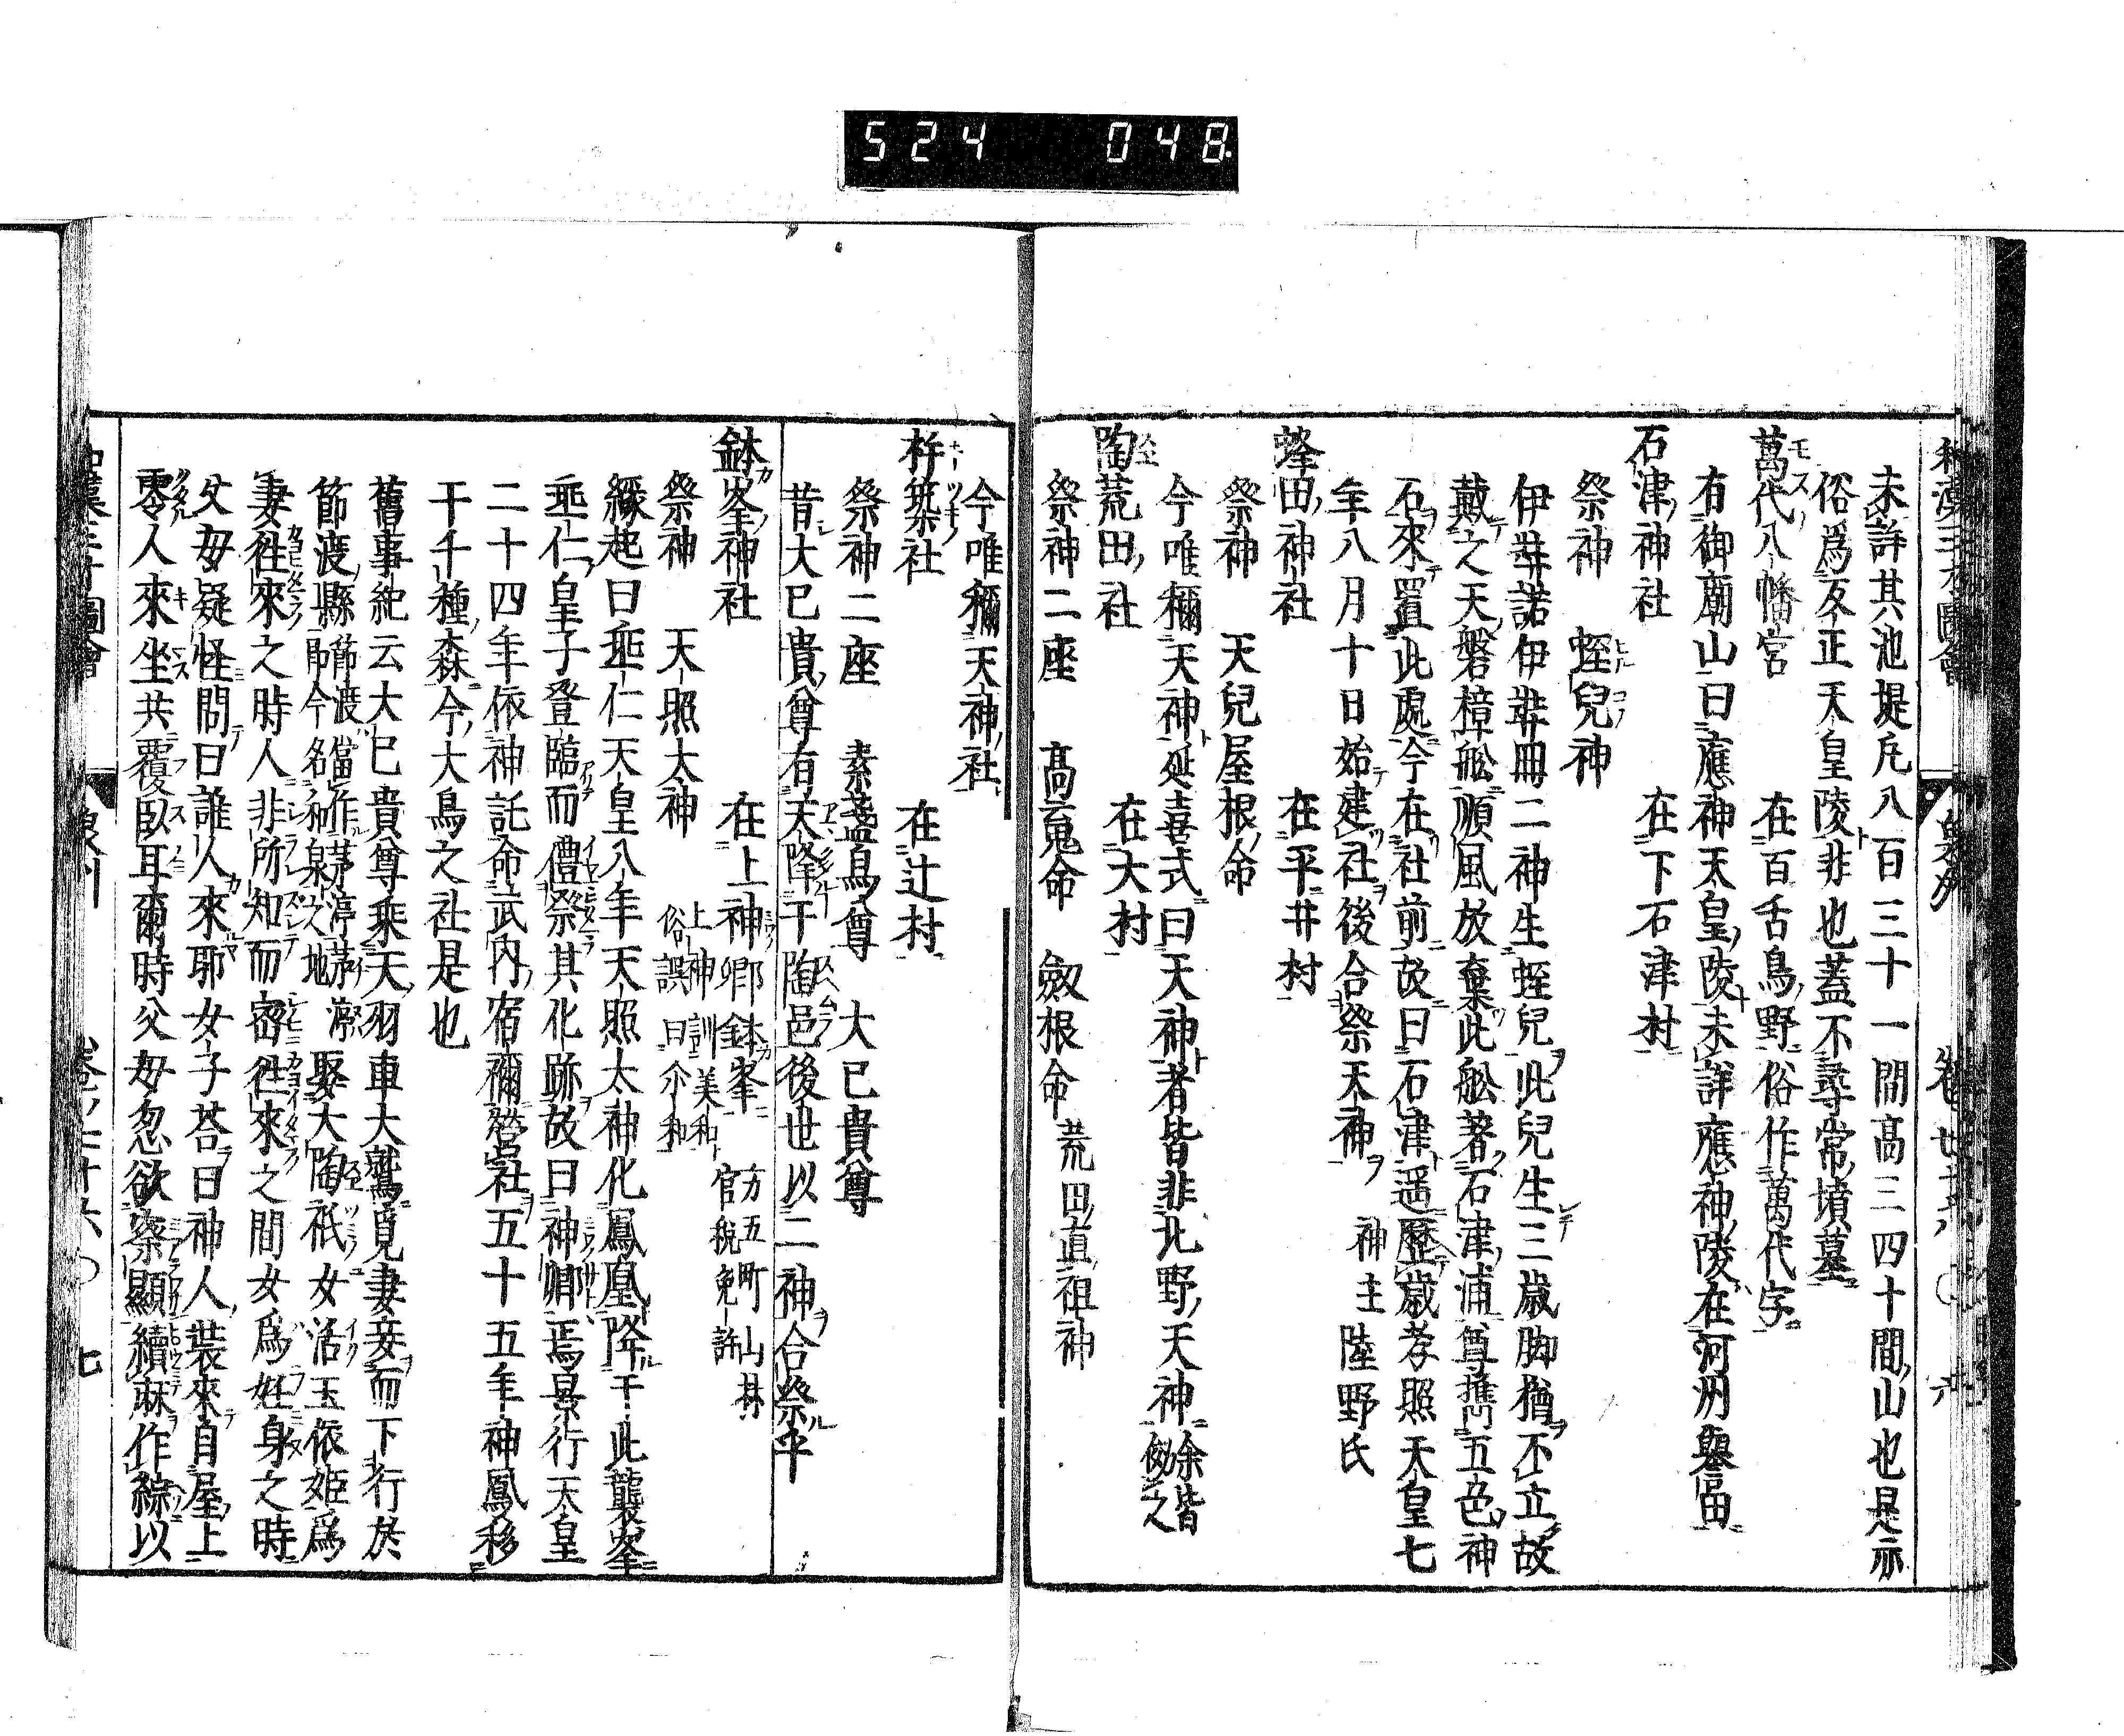 524 048
和漢三才圖會 泉州 卷七十六 ○ 六
未詳其池堤凡八百三十一間高三四十間山也是亦
俗爲反正天皇陵非也蓋不尋常墳墓
萬代八幡宮 在百舌鳥野俗作萬代字
有御廟山曰應神天皇陵未詳應神陵在河州譽田
石津神社 在下石津村
祭神 蛭兒神
伊弉諾伊弉冊二神生蛭兒此兒生三歲脚猶不立故
戴之天磐樟船順風放棄此船著石津浦尊携五色神
石來置此處今在社前故曰石津遥歷歲孝照天皇七
年八月十日始建社後合祭天神 神主陸野氏
蜂田神社 在平井村
祭神 天兒屋根命
今唯稱天神延喜式曰天神者皆非北野天神余皆
傚之
陶荒田社 在大村
祭神二座 高䰟命 劔根命 荒田直祖神
今唯稱天神社
杵築社 在辻村
祭神二座 素盞烏尊 大已貴尊
昔大已貴尊有天降于陶邑後世以二神合祭乎
鉢峯神社 在上神鄉鉢峯 方五町山林
官稅免許
祭神 天照大神 上神訓美和
俗誤曰尓和
縁起曰垂仁天皇八年天照太神化鳳凰降于此襲峯
垂仁皇子登臨而禮祭其化跡故曰神鄉焉景行天皇
二十四年依神託命武内宿禰營社五十五年神鳳移
干千種森今大鳥之社是也
舊事紀云大已貴尊乘天羽車大鷲覓妻妾而下行於
節渡縣 節渡當作茅渟茅渟
即今名和泉之地 娶大陶祇女活玉依姬爲
妻徃來之時人非所知而密徃來之間女爲姙身之時
父母疑怪問曰誰人來耶女子荅曰神人裝來自屋上
零入來坐共覆臥耳爾時父母忽欲察顯續麻作綜以
和漢三才圖會 泉州 卷七十六 ○ 七